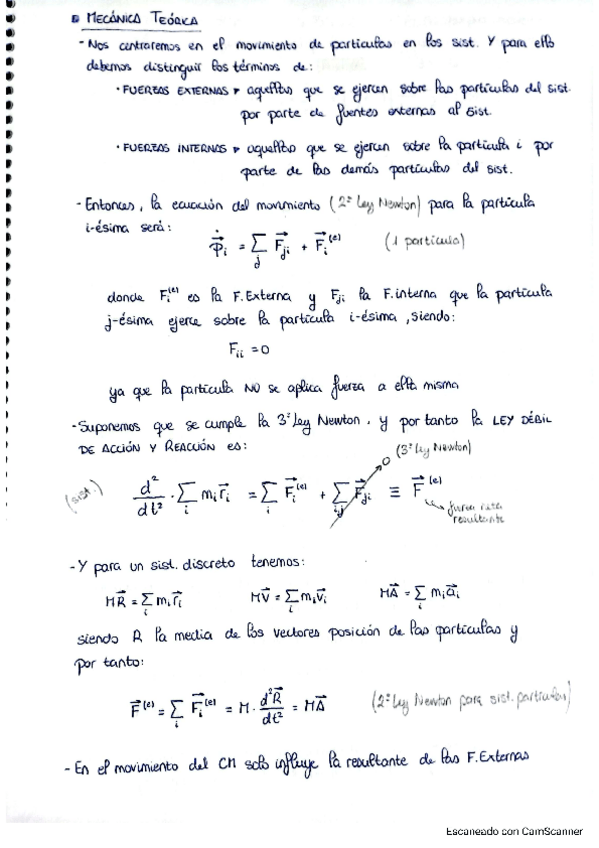 MECÁNICA TEÓRICA
- Nos centraremos en el movimiento de partículas en los sist. Y para ello
debemos distinguir los términos de:
· FUERZAS EXTERNAS ▸ aquellas que se ejercen sobre las partículas del sist.
por parte de fuentes externas al sist.
· FUERZAS INTERNAS ▸ aquellas que se ejercen sobre la partícula i por
parte de las demás partículas del sist.
- Entonces, la ecuación del movimiento (2ª Ley Newton) para la partícula
i-ésima será:
ṗ⃗ᵢ = Σⱼ F⃗ⱼᵢ + F⃗ᵢ⁽ᵉ⁾ (1 partícula)
donde Fᵢ⁽ᵉ⁾ es la F.Externa y Fⱼᵢ la F.interna que la partícula
j-ésima ejerce sobre la partícula i-ésima, siendo:
Fᵢᵢ = 0
ya que la partícula NO se aplica fuerza a ella misma
- Suponemos que se cumple la 3ª Ley Newton. y por tanto la LEY DÉBIL
DE ACCIÓN Y REACCIÓN es:
0 (3ª Ley Newton)
(sist.) d²/dt² · Σᵢ mᵢr⃗ᵢ = Σᵢ F⃗ᵢ⁽ᵉ⁾ + Σᵢⱼ F⃗ⱼᵢ ≡ F⃗⁽ᵉ⁾
resultante
- Y para un sist. discreto tenemos:
MR⃗ = Σᵢ mᵢr⃗ᵢ MV⃗ = Σᵢ mᵢv⃗ᵢ MA⃗ = Σᵢ mᵢa⃗ᵢ
siendo R la media de los vectores posición de las partículas y
por tanto:
F⃗⁽ᵉ⁾ = Σᵢ F⃗ᵢ⁽ᵉ⁾ = M · d²R⃗/dt² = MA⃗ (2ª Ley Newton para sist. partículas)
- En el movimiento del CM solo influye la resultante de las F.Externas
Escaneado con CamScanner